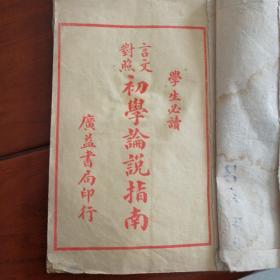 學生必讀
言文對照
初學論說指南
廣益書局印行